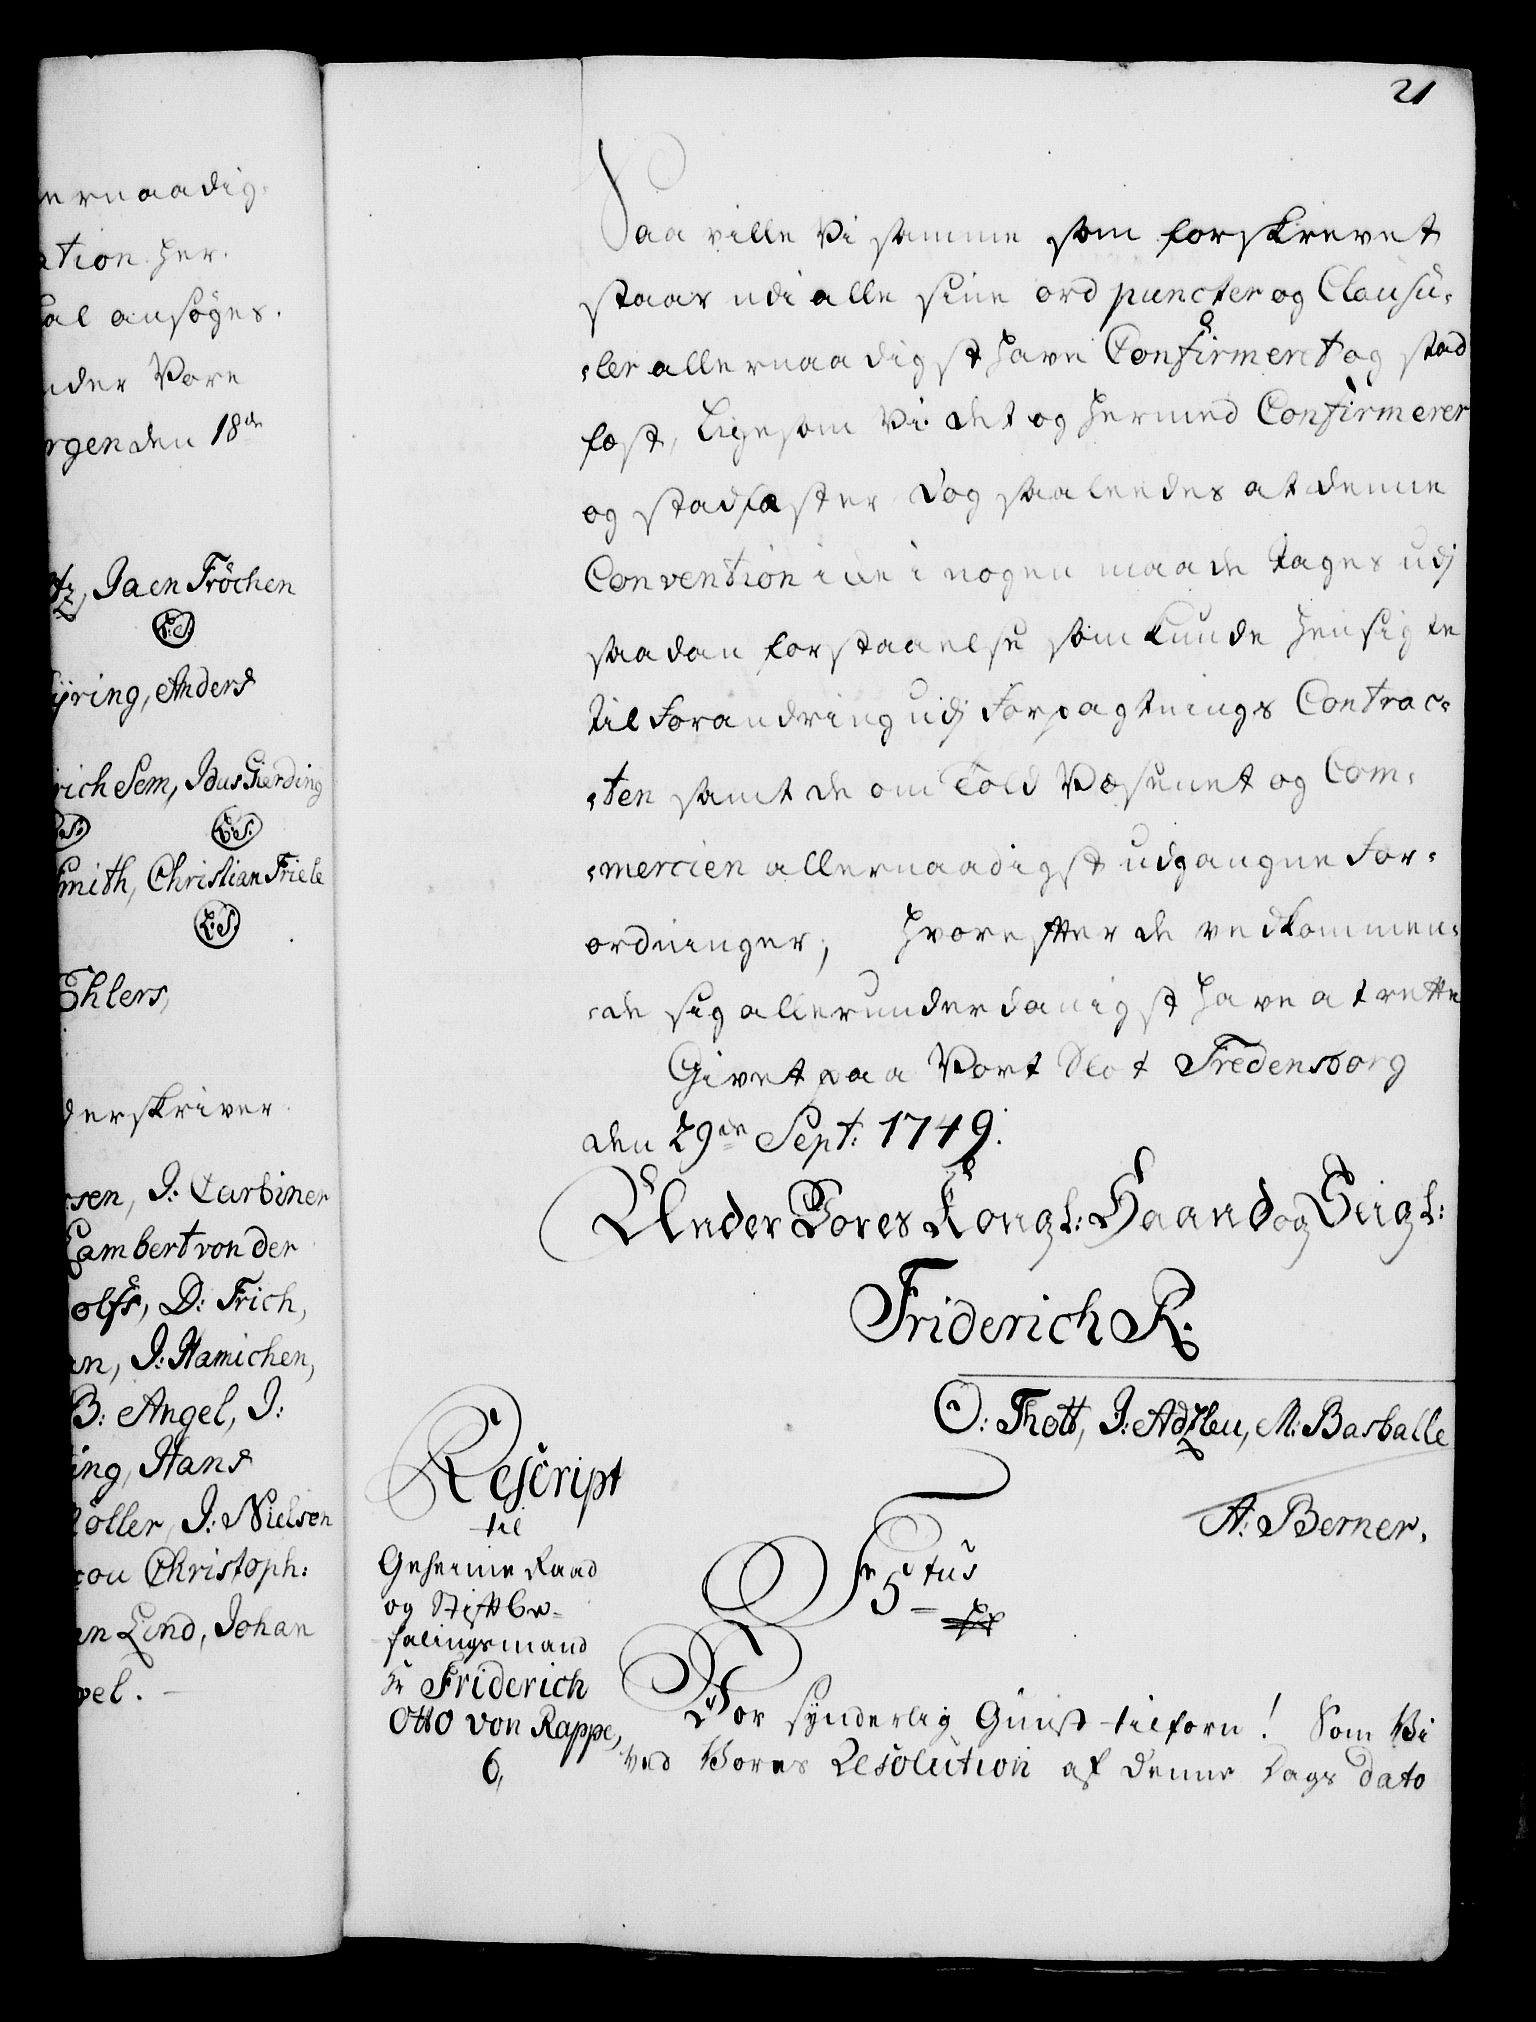 ernaadig-
ation her-
al ansøges.
nder Vore
rgen den 18de
Jaen Fröchen
L.S.
ÿring, Anders
rich Sem, Idus Gierding
L.S.
L.S.
Smith, Christian Friele
L.S.
Ehlers,
derskriver
rsen, J: Carbiner
Lambert von der
olfs, D: Frich,
en, J: Hamichen,
B: Angel, J:
ing, Hans
öller, J: Nielsen
cou Christoph:
en Lind, Johan
vel.
21
Saa ville Vi samme som forskrevet
staar udi alle sine ord puncter og Clausu-
-ler allernaadigst have Confirmeret og stad
fæst, Ligesom Vi det og hermed Confirmerer
og stadfæster Dog saaleedes at denne
Convention icke i nogen maade tages udj
saadan forstaaelse som kunde hensigte
til Forandring udj Forpagtnings Contrac-
-ten samt de om Told Væsenet og Com-
-mercien allernaadigst udgangne For-
ordninger, hvorefter de vedkommen-
-de sig allerunderdanigst have at rette
Givet paa Vort Slot Fredensborg
den 29de Sept: 1749.
Under Vores Kongl: Haand og Seigl:
Friderich R.
O: Thott, J: Adzleu, M: Basballe
A: Berner.
Rescript
til
Geheime Raad
og Stiftbe-
falingsmand
Hr Friderich
Otto von Rappe,
6,
Fr 5tus
Vor synderlig Gunst tilforn! Som Vi
ved Vores Resolution af denne Dags dato